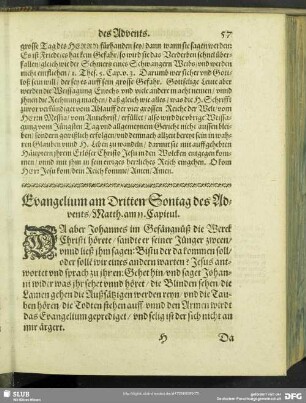 des Advents. 57
grosse Tag des HERRN fürhanden sey / dann wann sie sagen werden
Es ist Fried / es hat kein Gefahr / so wird sie das Verderben schnell über-
fallen / gleich wie der Schmertz eines Schwangern Weibs / vnd werden
nicht entfliehen / 1. Thes. 5. Cap. v. 3. Darumb wer sicher vnd Gott-
loß sein will / der sey es auff sein grosse Gefahr. Gottselige Leut aber
werden die Weissagung Enochs vnd viele anderer in acht nemen / vnd
jhnen die Rechnung machen / daß gleich wie alles / was die H. Schrifft
zuvor verkündiget vom Ablauff der vier grossen Reiche der Welt / vom
Herrn Messia / vom Antichrist / erfüllet / also wird die übrige Weissa-
gung vom Jüngsten Tag vnd allgemeinem Gericht nicht aussen blei-
ben / sondern gewißlich erfolgen / vnd demnach allzeit bereit sein in wah-
ren Glauben vnnd H. Leben zu wandeln / darmit sie mit auffgehebten
Häuptern jhrem Erlöser Christo Jesu in den Wolcken entgegen kom-
men / vnnd mit jhm in sein ewiges herrliches Reich eingehen. O kom
Herr Jesu kom / dein Reich komme / Amen / Amen.
Evangelium am Dritten Sontag des Ad-
vents / Matth. am 11. Capitul.
DA aber Johannes im Gefängnüß die Werck
Christi hörete / sandte er seiner Jünger zween /
vnnd ließ jhm sagen: Bistu der da kommen soll /
oder soll wir eines andern warten? Jesus ant-
wortet vnd sprach zu jhnen: Gehet hin / vnd saget Johan-
ni wider was jhr sehet vnnd höret / die Blinden sehen / die
Lamen gehen / die Außsätzigen werden reyn / vnd die Tau-
ben hören / die Todten stehen auff / vnnd den Armen wirdt
das Evangelium geprediget / vnd selig ist der sich nicht an
mir ärgert.
H Da
SLUB
DFG